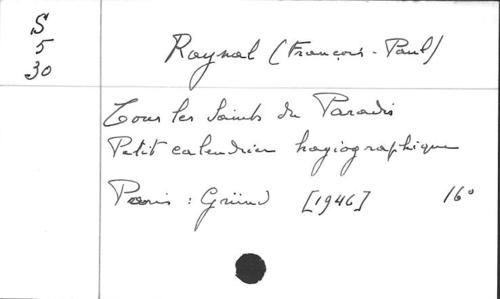 S
5
30
Raynal (François-Paul)
Tous les Saints du Paradis
Petit calendrier hagiographique
Paris : Gründ [1946] 16°